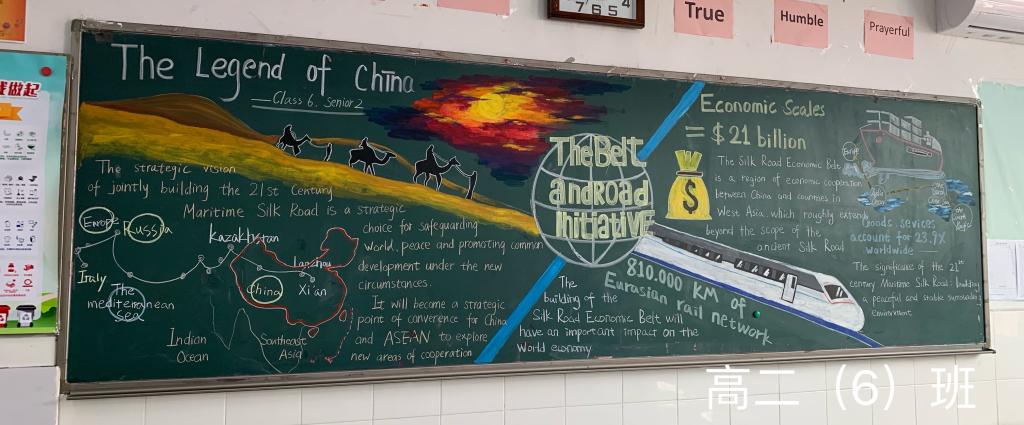 7 6 5 4
True
Humble
Prayerful
做起
The Legend of China
Class 6, Senior 2
The strategic vision
of jointly building the 21st Century
Maritime Silk Road is a strategic
choice for safeguarding
World, peace and promoting common
development under the new
circumstances.
It will become a strategic
point of converence for China
and ASEAN to explore
new areas of cooperation
Europe
Russia
Kazakhstan
Lanzhou
China
Xi'an
Italy
The
mediterranean
sea
Indian
Ocean
Southeast
Asia
The Belt
and Road
Initiative
Economic Scales
= $21 billion
$
The Silk Road Economic Belt
is a region of economic cooperation
between China and countries in
West Asia, which roughly extends
beyond the scope of the
ancient Silk Road
Europe
Goods, sevices
account for 23.9%
worldwide
The significance of the 21st
century Maritime Silk Road: building
a peaceful and stable surrounding
Environment
810.000 KM of
Eurasian rail network
The
building of the
Silk Road Economic Belt will
have an important impact on the
World economy
高二（6）班